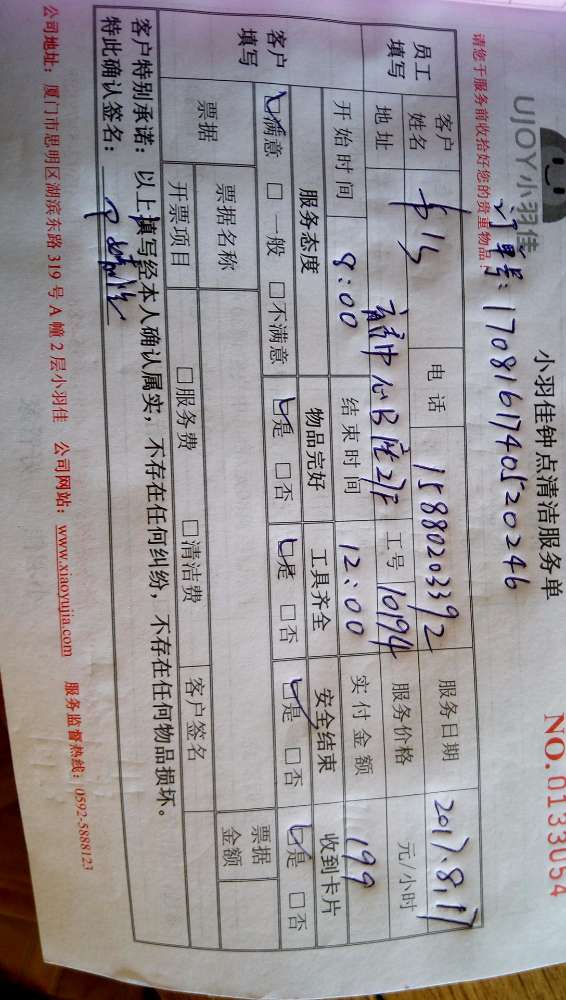 UJOY小羽佳
小羽佳钟点清洁服务单
NO.0133054
单号: 1708161740520246
请您于服务前收拾好您的贵重物品!
员工填写
客户姓名 电话 15880203392 服务日期 2017.8.17
地址 中心B座27F 工号 10194 服务价格 元/小时
开始时间 8:00 结束时间 12:00 实付金额 199
客户填写
服务态度 物品完好 工具齐全 安全结束 收到卡片
☑满意 □一般 □不满意 ☑是 □否 ☑是 □否 ☑是 □否 ☑是 □否
票据 票据名称 票据金额
开票项目 □服务费 □清洁费 客户签名
客户特别承诺：以上填写经本人确认属实，不存在任何纠纷，不存在任何物品损坏。
特此确认签名：
公司地址：厦门市思明区湖滨东路319号A幢2层小羽佳 公司网站：www.xiaoyujia.com 服务监督热线：0592-5888123